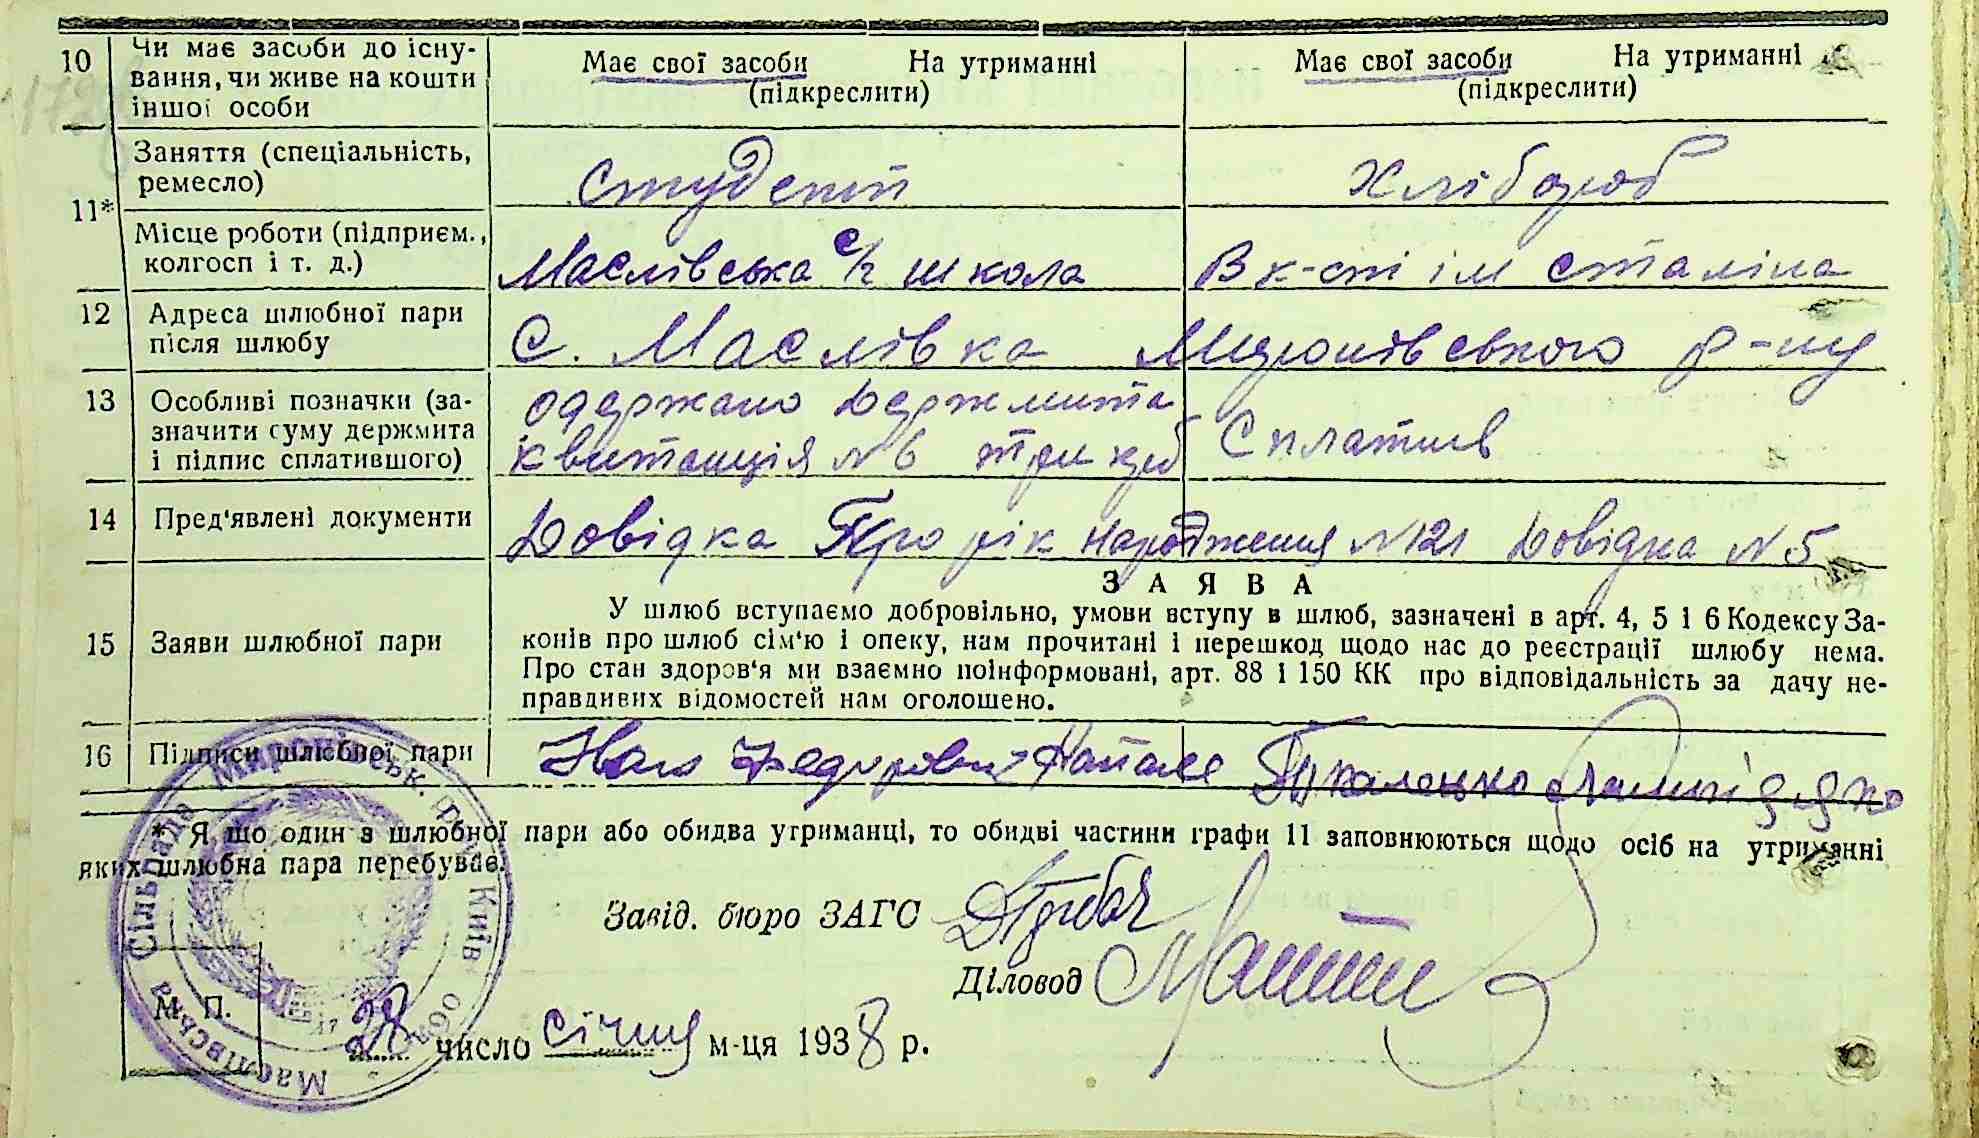 10 Чи має засоби до існу-
вання, чи живе на кошти
іншої особи
Має свої засоби На утриманні
(підкреслити)
Має свої засоби На утриманні
(підкреслити)
11*
Заняття (спеціальність,
ремесло)
студент
хлібороб
Місце роботи (підприєм.,
колгосп і т. д.)
Маслівська с/г школа
В к-сті ім Сталіна
12 Адреса шлюбної пари
після шлюбу
С. Маслівка Миронівського р-ну
13 Особливі позначки (за-
значити суму держмита
і підпис сплатившого)
одержано держмита
квитанція №6 три крб
Сплатив
14 Пред'явлені документи
Довідка Про рік народження №121 Довідка №5
15 Заяви шлюбної пари
ЗАЯВА
У шлюб вступаємо добровільно, умови вступу в шлюб, зазначені в арт. 4, 5 і 6 Кодексу За-
конів про шлюб сім'ю і опеку, нам прочитані і перешкод щодо нас до реєстрації шлюбу нема.
Про стан здоров'я ми взаємно поінформовані, арт. 88 і 150 КК про відповідальність за дачу не-
правдивих відомостей нам оголошено.
16 Підписи шлюбної пари
* Я що один з шлюбної пари або обидва утриманці, то обидві частини графи 11 заповнюються щодо осіб на утриманні
яких шлюбна пара перебуває.
Завід. бюро ЗАГС
Діловод
М. П.
28 число січня м-ця 1938 р.
Маслівська Сільрада Миронівськ. Київ обл.